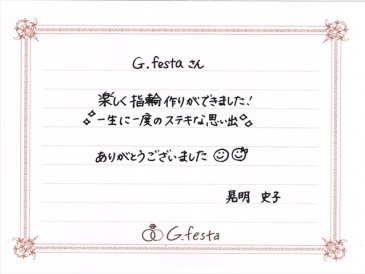 G.festaさん
楽しく指輪作りができました!
一生に一度のステキな思い出
ありがとうございました
晃明 史子
G.festa